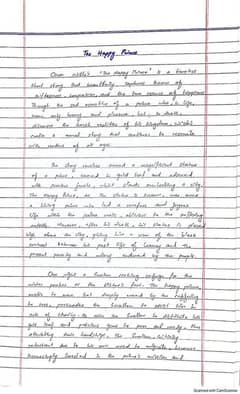 The Happy Prince
Oscar Wilde's "The Happy Prince" is a timeless
short story that beautifully captures themes of
selflessness, compassion, and the true essence of happiness.
Through the sad narrative of a prince who, in life,
knew only luxury and pleasure, but, in death,
discovers the harsh realities of his kingdom, Wilde
a moral story that continues to resonate
with readers of all ages.
The story revolves around a magnificent statue
of a prince, covered in gold leaf and adorned
with precious jewels, which stands overlooking a city.
The Happy Prince, as the statue is known, was once
a living prince who led a carefree and joyous
life within the palace walls, oblivious to the suffering
outside. However, after his death, his statue is placed
high above the city, giving him a view of the bleak
contrast between his past life of luxury and the
present poverty and misery endured by the people.
One night a Swallow seeking refuge for the
winter perches at the statue's feet. The Happy Prince,
unable to move but deeply moved by the suffering
he sees, persuades the Swallow to assist him in
acts of charity. He asks the Swallow to distribute his
gold leaf and precious gems to poor and needy, thus
alleviating their hardships. The Swallow, initially
reluctant due to his own need to migrate, becomes
increasingly involved in the prince's mission and
Scanned with CamScanner